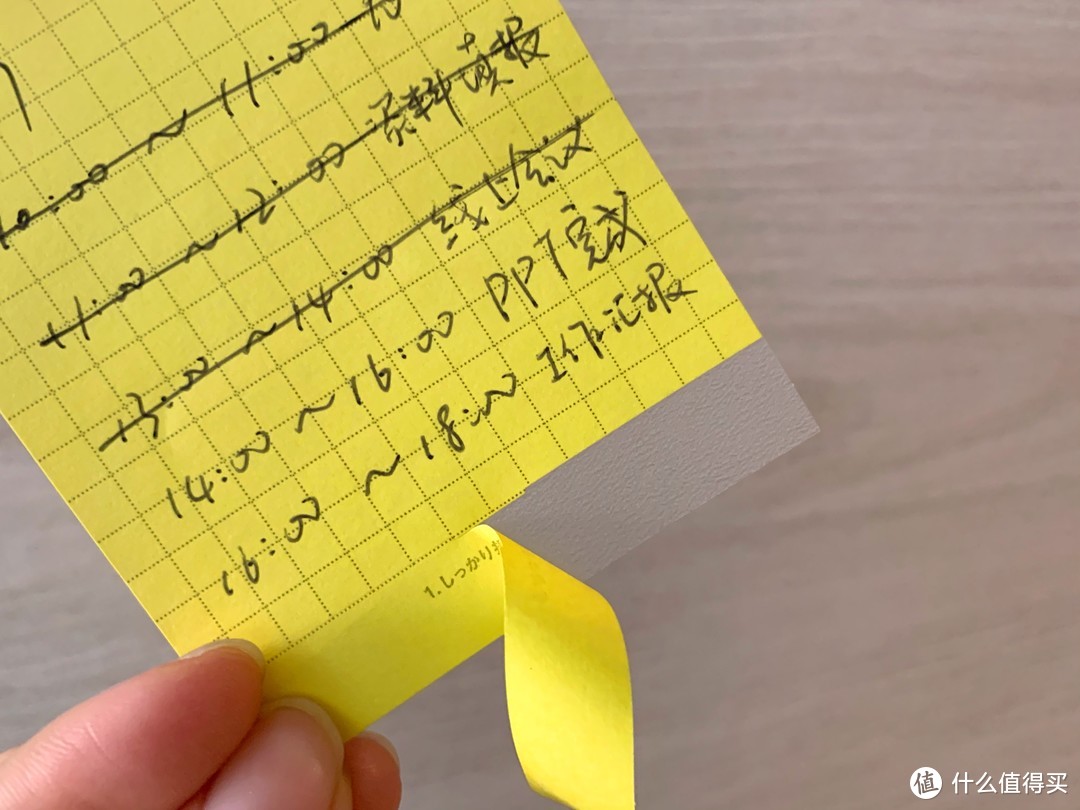 10:00 ~ 11:00
11:00 ~ 12:00 资料填报
13:00 ~ 14:00 线上会议
14:00 ~ 16:00 PPT完成
16:00 ~ 18:00 工作汇报
1.しっかり
值 什么值得买